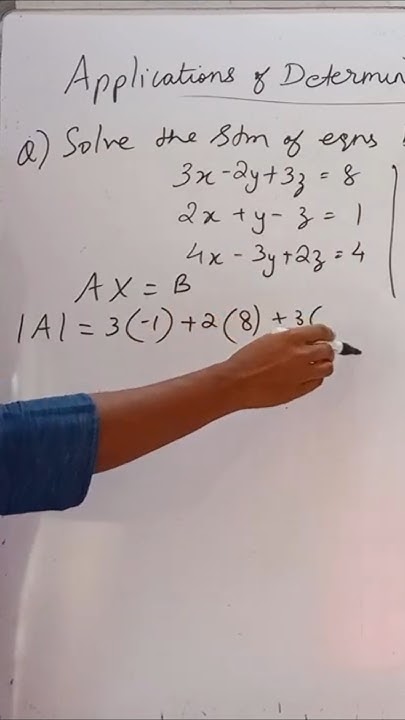 Applications of Determin
Q) Solve the Stm of eqns
3x - 2y + 3z = 8
2x + y - z = 1
4x - 3y + 2z = 4
AX = B
|A| = 3(-1) + 2(8) + 3(